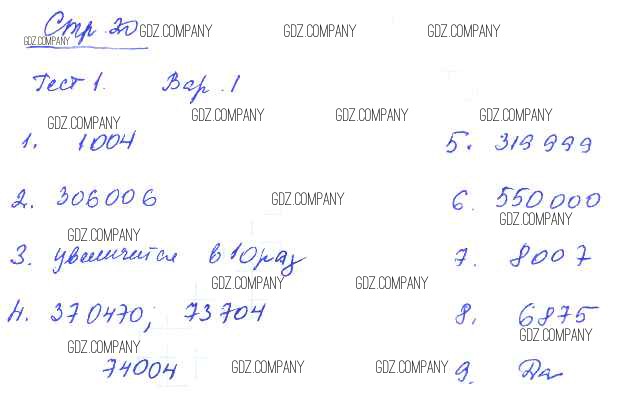 Стр. 20
Тест 1. Вар. 1
1. 1004
2. 306006
3. увеличится в 10 раз
4. 370470; 73704
74004
5. 319999
6. 550000
7. 8007
8. 6875
9. Да
GDZ.COMPANY GDZ.COMPANY GDZ.COMPANY
GDZ.COMPANY
GDZ.COMPANY GDZ.COMPANY GDZ.COMPANY
GDZ.COMPANY
GDZ.COMPANY
GDZ.COMPANY
GDZ.COMPANY
GDZ.COMPANY GDZ.COMPANY
GDZ.COMPANY
GDZ.COMPANY
GDZ.COMPANY GDZ.COMPANY